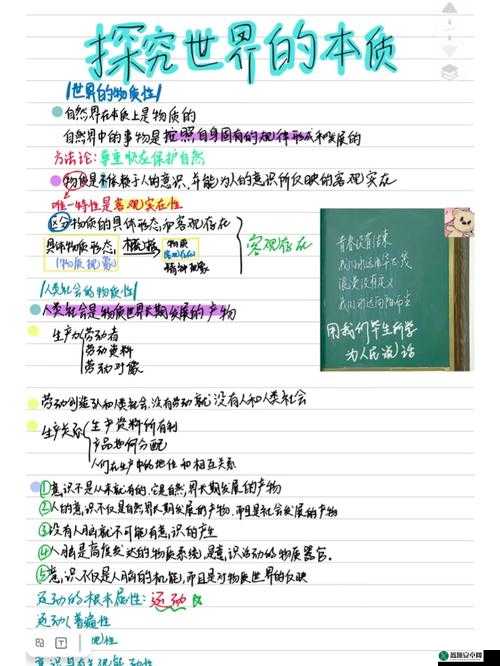 探究世界的本质
世界的物质性
自然界在本质上是物质的
自然界中的事物是按照自身固有的规律形成和发展的
方法论：尊重 保护自然
物质是不依赖于人的意识，并能为人的意识所反映的客观实在
唯一特性是客观实在性
区分物质的具体形态而客观存在
具体物质形态
物质
(物质现象)
精神现象
客观存在
青春没有结束
浪漫没有
用我们毕生所学
为人民说话
人类社会的物质性
人类社会是物质世界长期发展的产物
生产力
劳动者
劳动资料
劳动对象
劳动创造了人和人类社会，没有劳动就没有人和人类社会
生产关系
生产资料所有制
产品如何分配
人们在生产中的地位和相互关系
①意识不是从来就有的，它是自然界长期发展的产物
②人的意识不仅是自然界长期发展的产物，而且是社会发展的产物
③没有人脑就不可能有意识的产生
④人脑是高度发达的物质系统，是意识活动的物质器官。
⑤意识不仅是人脑的机能，而且是对物质世界的反映
运动的根本属性：运动
运动(普遍性
T